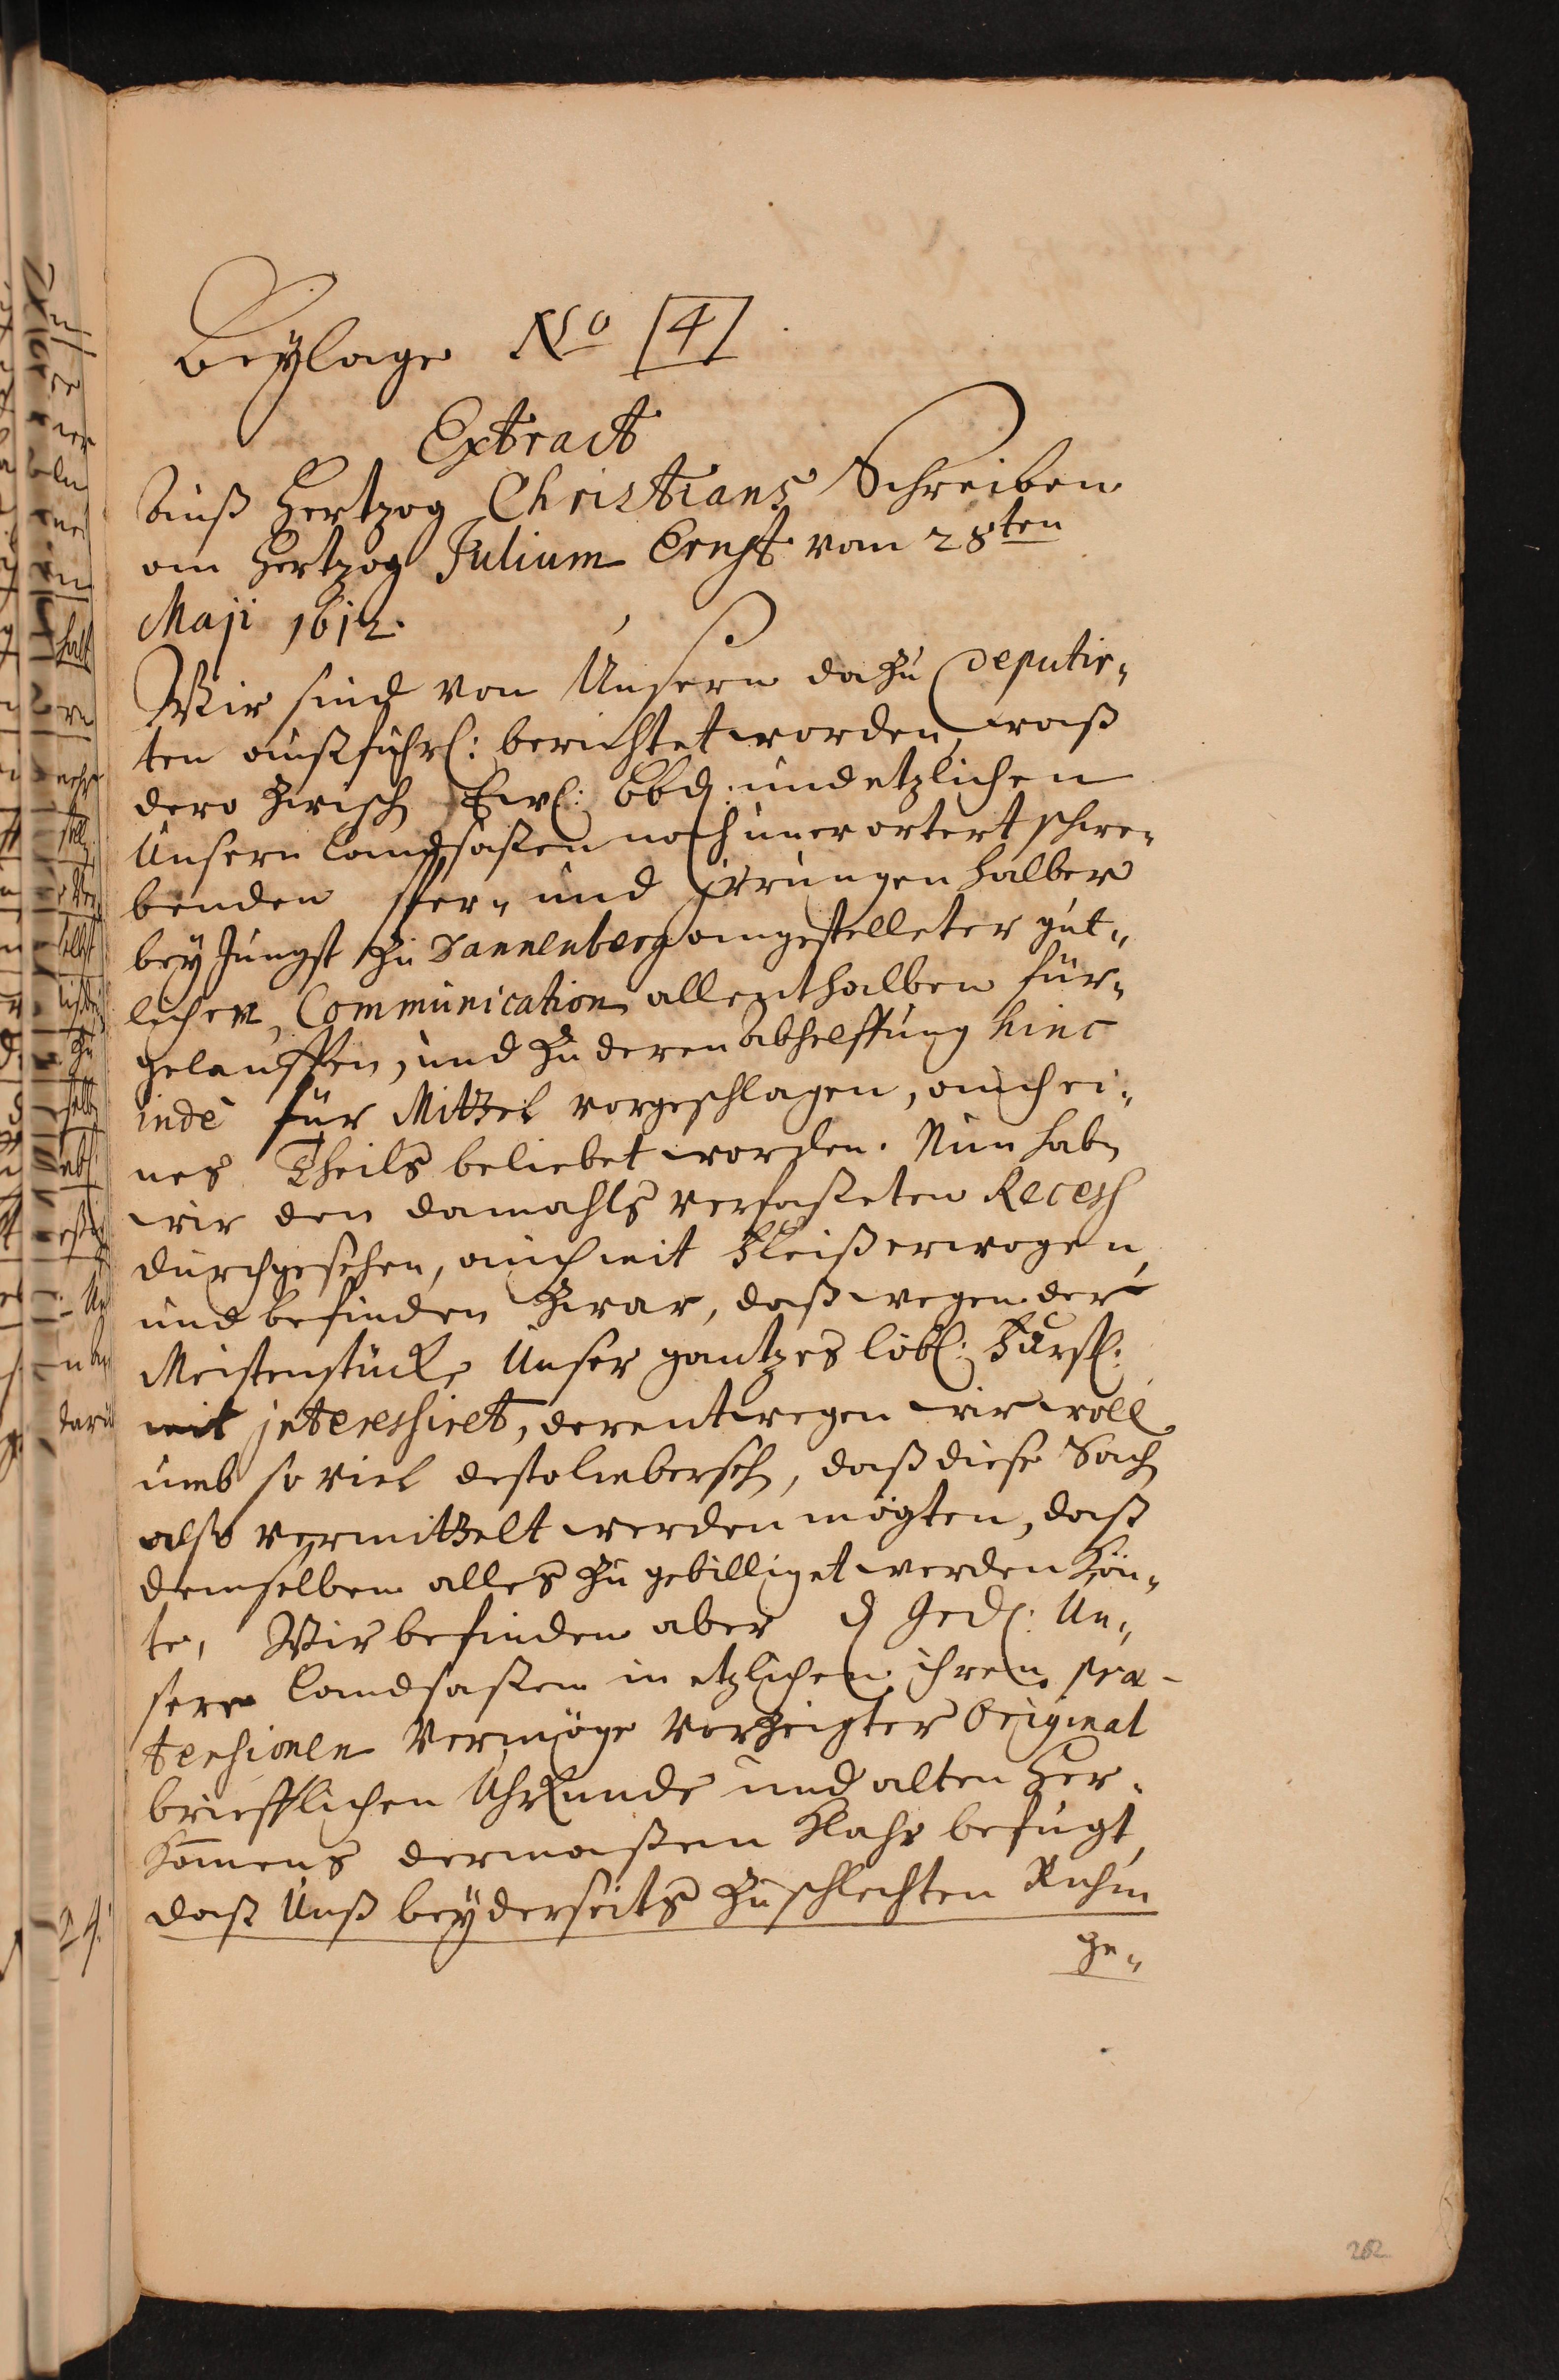 Beylage No 4
Extract
Auß Hertzog Christians Schreiben
an Hertzog Julium Ernst vom 28ten
Maji 1612.
Wir sind von Unsern dazu Deputir„
ten außführl: berichtet worden, waß
dero zwisch Ewl: Lbd: und etzlichen
Unsern Landsaßen noch unerortert schwe„
benden Irrungen halber
bey Jüngst zu Dannenberg angestelleter güt„
licher Communication allenthalben für„
gelauffen, und zu deren Abhelffung hinc
inde für Mittel vorgeschlagen, auch ei„
nes Theils beliebet worden. Nun habn
wir den damahls verfaßeten Recess
durchgesehen, auch mit Fleiß erwogen,
und befinden zwar, daß wegen der
Meistenstücke Unser gantzes löbl: Fürstl:
mit interessiret, derentwegen wir woll
umb so viel destolieber sehn, daß diese Sach
also vermittelt werden mögten, daß
demselben alles zu gebilliget werden kön„
te, Wir befinden aber Ged: Un„
sere Landsaßen in etzlichen ihren præ-
tensionen Vermöge Vorzeigter Original
briefflichen Uhrkunde und alten Her„
komens dermaßen klahr befugt,
daß Unß beyderseits zu schlechten Ruhm
ge„
262